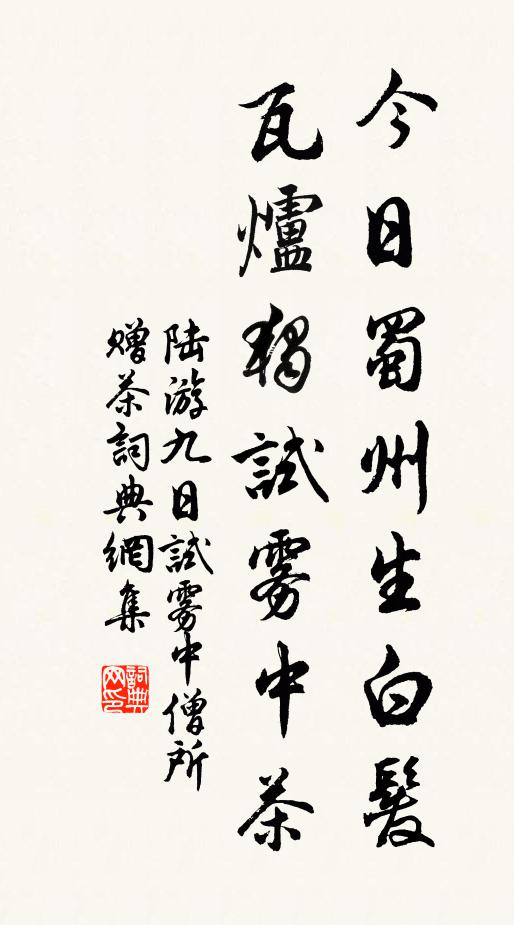 今日蜀州生白髮
瓦爐獨試霧中茶
陆游九日試霧中僧所
贈茶詞典網集
詞典
网印